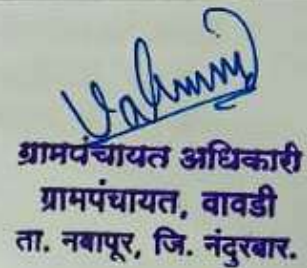 ग्रामपंचायत अधिकारी
ग्रामपंचायत, वावडी
ता. नवापूर, जि. नंदुरबार.